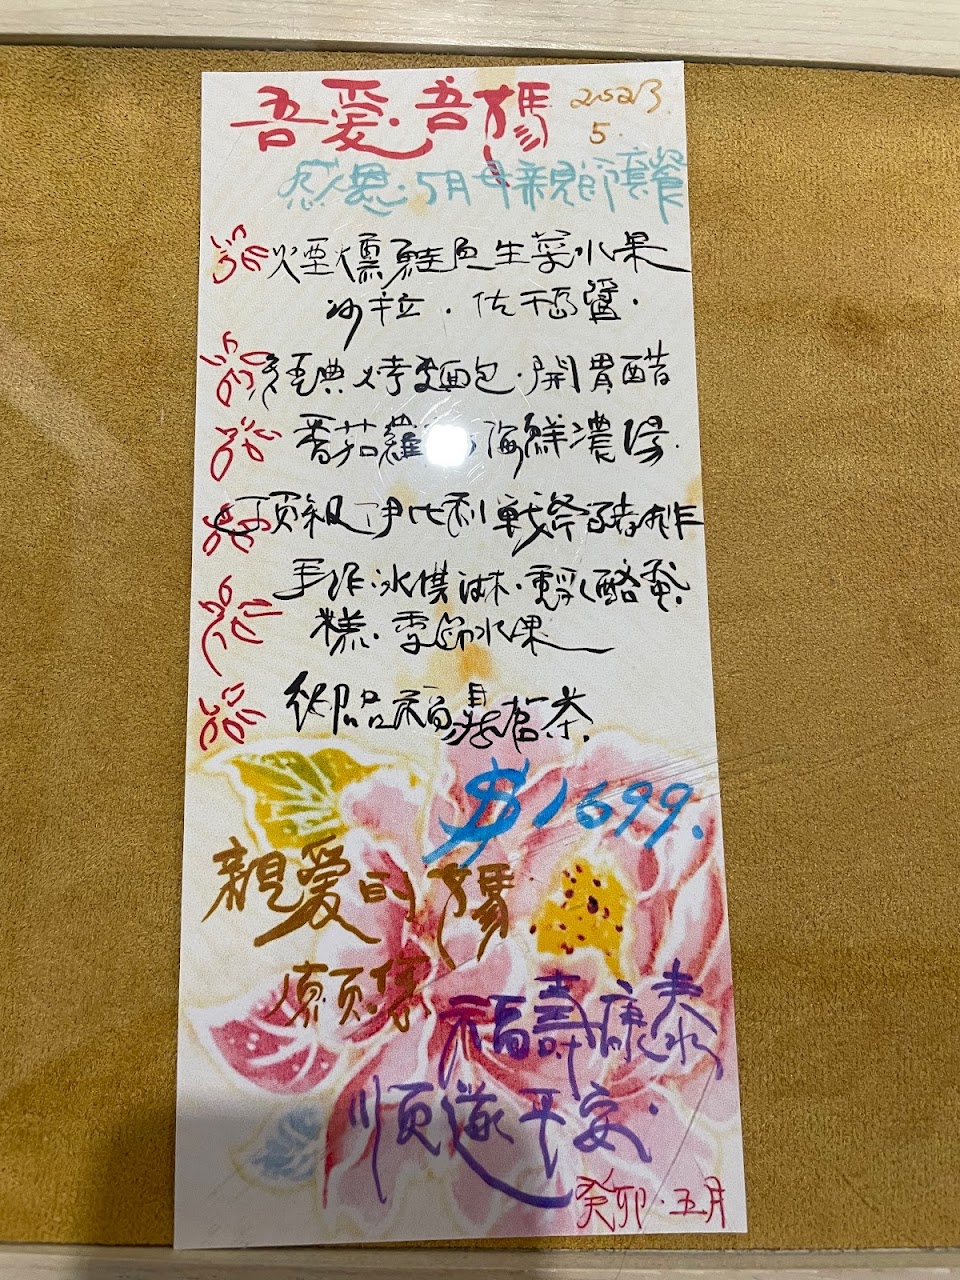 吾愛·吾媽
2023.
5.
感恩·5月母親節套餐
煙燻鮭魚生菜水果
沙拉.佐千島醬.
經典烤麵包.開胃醋
番茄羅 海鮮濃湯.
頂級伊比利戰斧豬排
手作冰淇淋.重乳酪蛋
糕.季節水果
御品福 茶.
$1699.
親愛的媽
願您
福壽康泰
順遂平安.
癸卯.五月